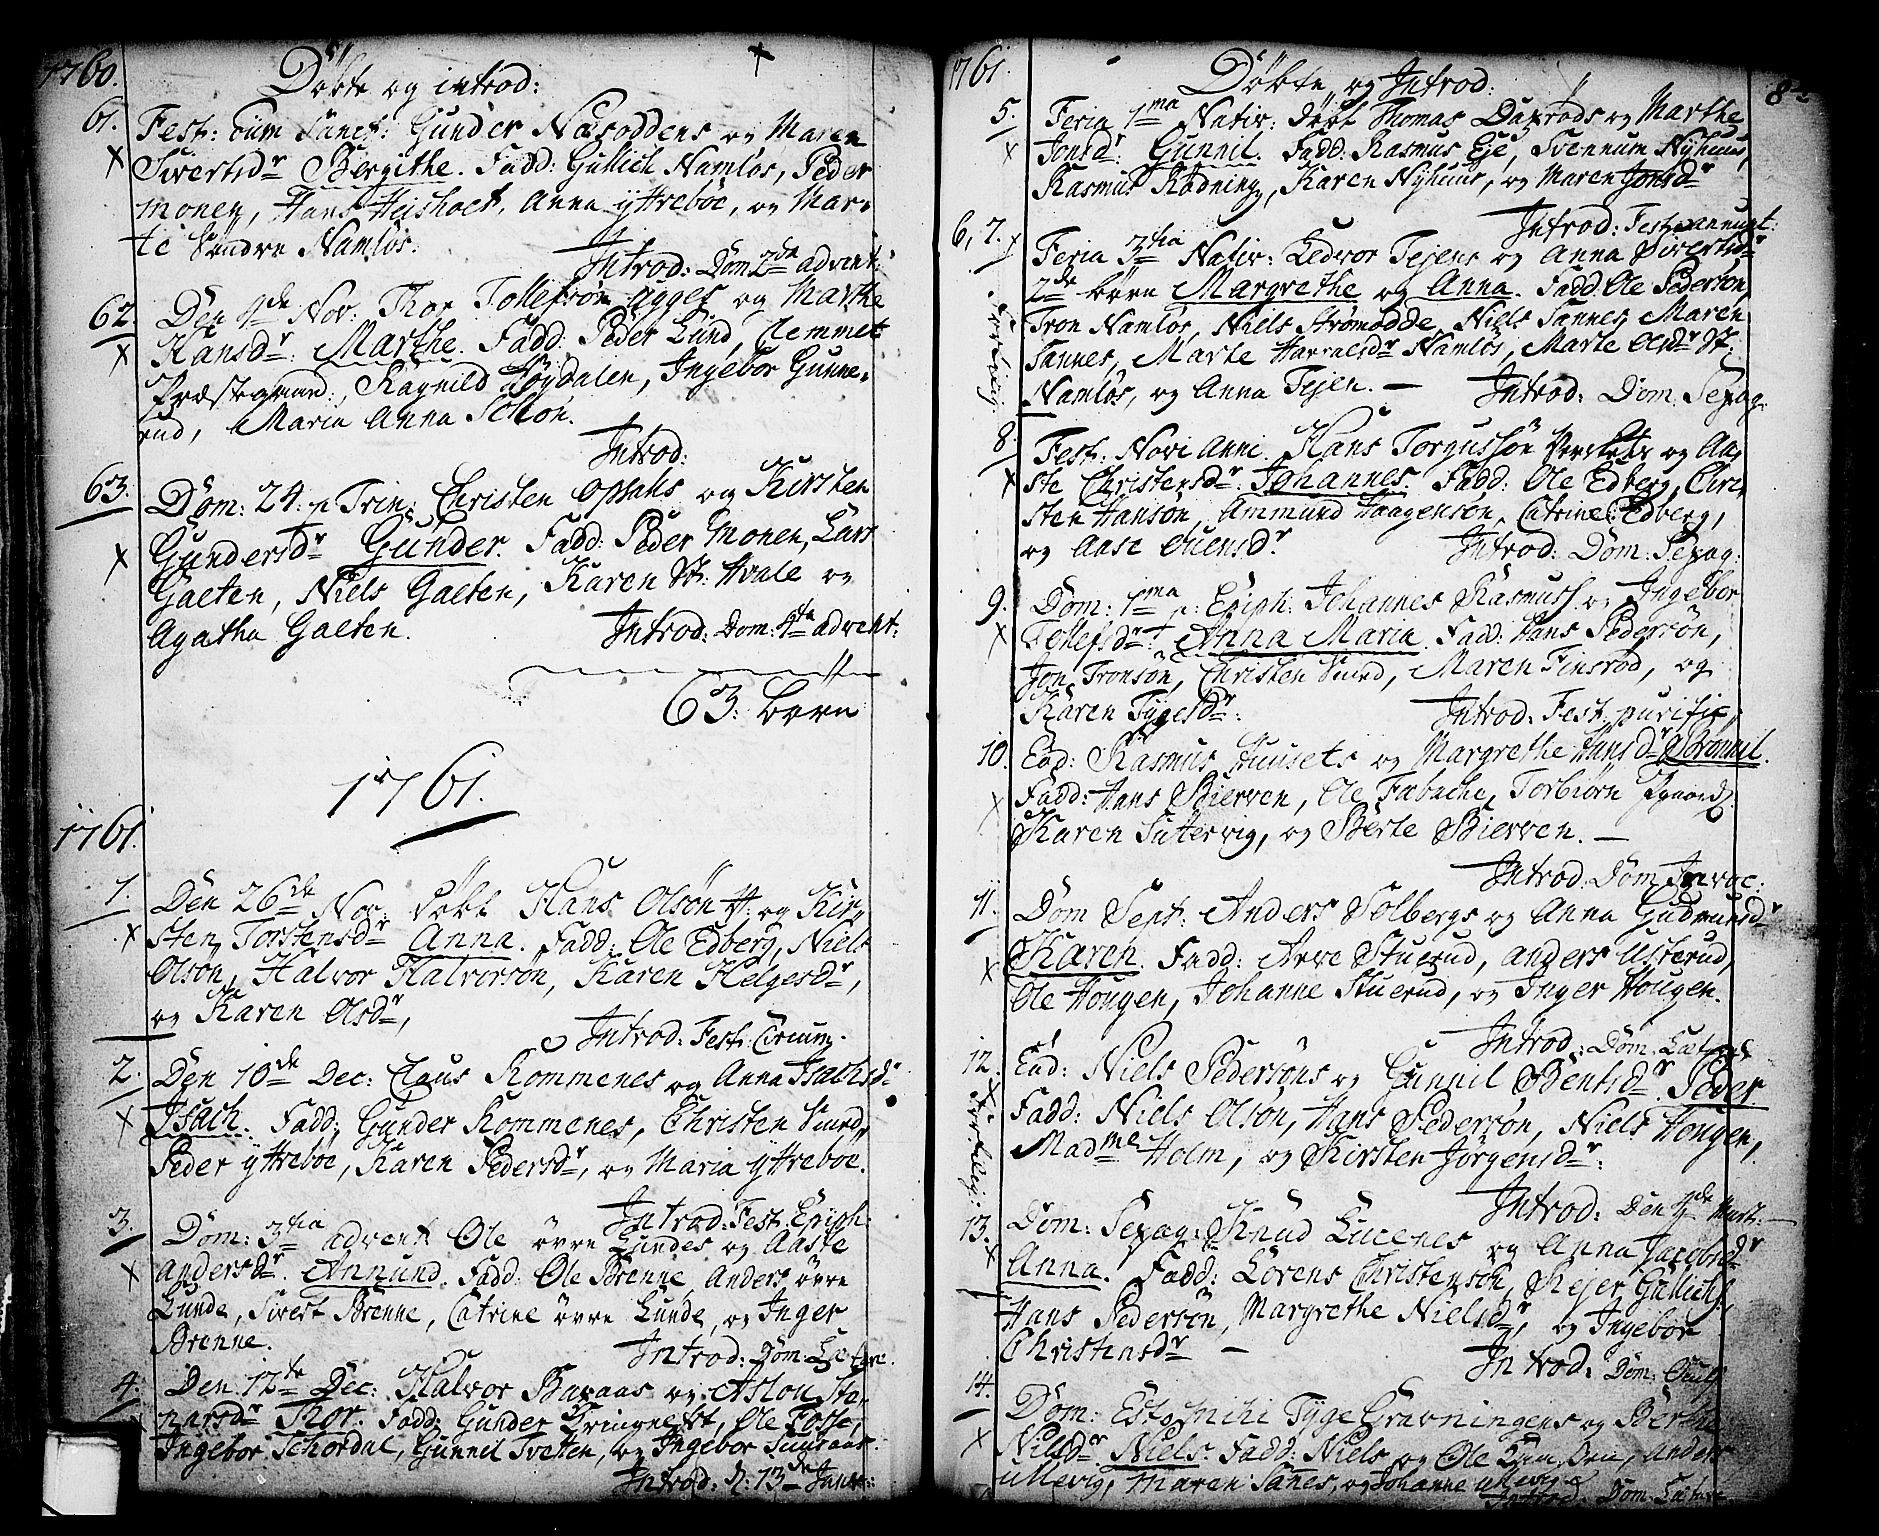 1760.
Döbte og introd:
61. Fest: Omn: Sanct: Gunder Næsoddens og Maren
Sivertsdr Bergithe. Fadd: Gullich Namløs, Peder
Monen, Hans Heishoet, Anna yttreböe, og Mar-
te Söndre Namløs.
Introd: Dom 2de advent:
62. Den 4de Nov: Thor Tollefsön Agges og Marthe
Hansdr: Marthe. Fadd: Peder Lund, Clemmet
Præstegaard:, Ragnild Högdalen, Ingebor Gunne-
rud, Maria Anna Schön.
Introd:
63. Dom: 24. p. Trin. Christen Opsahls og Kirsten
Gundersdr Gunder. Fadd: Peder Monen, Lars
Gaeten, Niels Gaeten, Karen St: Hvale og
Agatha Gaeten.
Introd: Dom: 4ta advent:
63: børn
1761.
1761.
1. Den 26de Nov: döbt Hans Olsön og Kir-
sten Torstensdr Anna. Fadd: Ole Edberg, Niels
Olsön, Halvor Halvorsön, Karen Helgesdr,
og Karen Olsdr,
Introd: Fest: Circum.
2. Den 10de Dec: Claus Kommenes og Anna Isachsdr
Isach. Fadd: Gunder Kommenes, Christen Smed,
Peder yttreböe, Karen Pedersdr, og Maria yttreboe.
Introd: Fest: Epiph:
3. Dom: 3tia advent: Ole övre Lundes og Aaste
Andersdr. Annund. Fadd: Ole Brenne, Anders övre
Lunde, Sivert Brenne, Catrine övre Lunde, og Inger
Brenne.
Introd: Dom: Lætare.
4. Den 12te Dec: Halvor Baraas og Aslou Ha-
narsdr Thor. Fadd: Gunder Kringnefst, Ole Foss,
Ingebor Schordal, Gunnil Tveten, og Ingebor
Introd: d: 13de Janv:
1761.
Döbte og Introd:
84
5. Feria 1ma Nativ: döbt Thomas Daxrods og Marthe
Jonsdr: Gunnil. Fadd: Rasmus Eje, Svennum Nyhuus,
Rasmus Rødning, Karen Nyhuus, og Maren Jonsdr
Introd: Fest: annunt:
6, 7. Feria 3tia Nativ: Ledvor Tejens og Anna Sivertsdr
2de børn Margrethe og Anna. Fadd: Ole Pedersön,
Tron Namløs, Niels Strömodde, Niels Sannes, Maren
Sannes, Marte Harralsdr Namløs, Marte Olsdr St:
Namløs, og Anna Tejen.
Introd: Dom. Sexag:
8. Fest: Novi Anni. Hans Torgussön og Aa-
ste Christensdr: Johannes. Fadd: Ole Edberg, Chri-
sten Hansön, Ammund Haagensön, Catrine Edberg,
og Aase Ouensdr.
Introd: Dom: Sexag:
9. Dom: 1ma p: Epiph: Johannes Rasmuss. og Ingebor
Tollefsdr: Anna Maria. Fadd: Hans Pedersön,
Jon Tronsön, Christen Smed, Maren Finsrod, og
Karen Tygesdr:
Introd: Fest: purific.
10. Eod: Rasmus Huusets og Margrethe Hansdr Brönnil.
Fadd: Hans Bierven, Ole Fæbache, Torbiörn
Karen Sutervig, og Berte Bierven.
Introd: Dom Invoc:
11. Dom Sept: Anders Solbergs og Anna Gudmundsdr
Karen. Fadd: Arve Stuerud, Anders Usterud,
Ole Hougen, Johanne Stuerud, og Inger Hougen.
Introd: Dom. Lætare
12. Eod: Niels Pedersöns og Gunnil Bentsdr. Peder
Fadd: Niels Olsön, Hans Pedersön, Niels Hougen,
Madme Holm, og Kirsten Jörgensdr.
Introd: Den 4de Marts.
13. Dom: Sexag: Knud Lucenes og Anna Jacobsdr
Anna. Fadd: Lörens Christensön, Rejer Gullichs,
Hans Pedersön, Margrethe Nielsdr, og Ingebör
Christensdr
Introd: Dom: Oculi
14. Dom: Esto mihi Tyge Gravningens og Berthe
Nilsdr. Niels. Fadd: Niels og Ole Anders
Ullevig, Maren Sanes, og Johanne Ullevig
Introd. Dom. Lætare.